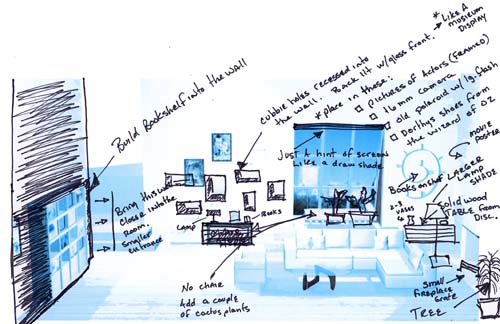 * Like A
museum
Display
cubbie holes recessed into
the wall. Back lit w/glass front.
* place in these:
□ Pictures of Actors (FRAMED)
□ 16mm camera
□ old polaroid w/ lg. flash
□ Dorthys shoes from
the wizard of OZ
Build Bookshelf into the wall
Just A hint of screen
Like a draw shade
movie
poster
Bring this wall
Closer into the
Room.
Smaller
Entrance
Books on shelf
LARGER
LAMP
SHADE
2-3
vases
Solid wood
TABLE From
Disc..
LAMP
Books
No chair
Add a couple
of cactus plants
Small
fireplace
grate
TREE